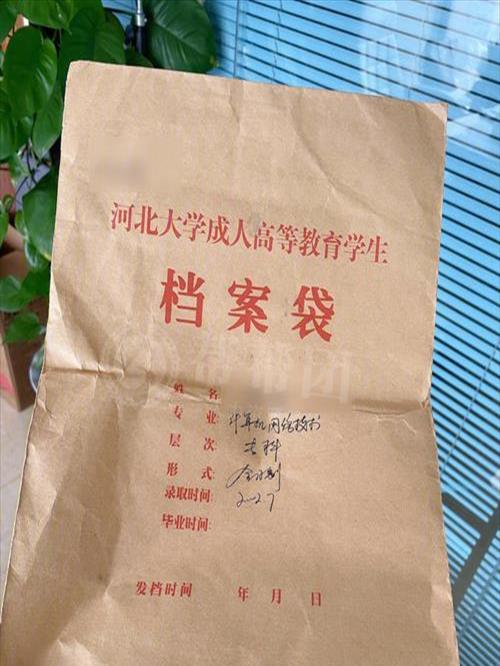 河北大学成人高等教育学生
档案袋
姓名:
专业: 计算机网络技术
层次: 专科
形式:
录取时间:
毕业时间:
发档时间 年 月 日